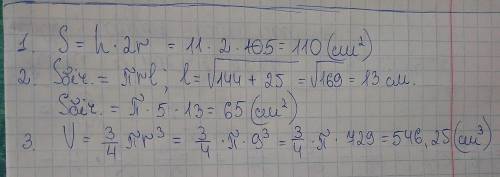 1. S = h · 2r = 11 · 2 · 105 = 110 (см²)
2. Sбіч. = πrl ; l = √144 + 25 = √169 = 13 см.
Sбіч. = π · 5 · 13 = 65 (см²)
3. V = 3/4 πr³ = 3/4 · π · 9³ = 3/4 · π · 729 = 546,25 (см³)